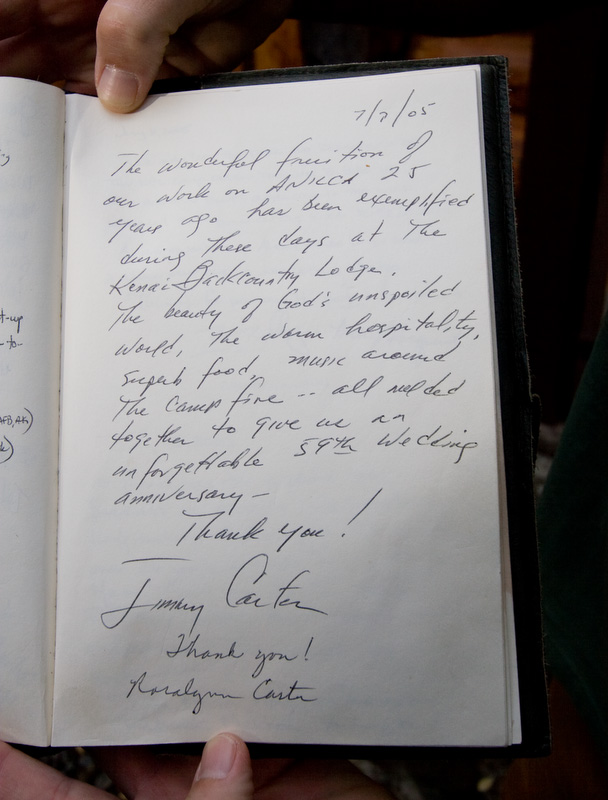 7/7/05
The wonderful fruition of
our work on ANILCA 25
years ago has been exemplified
during these days at the
Kenai Backcountry Lodge.
The beauty of God's unspoiled
world, the warm hospitality,
superb food, music around
the camp fire -- all melded
together to give us an
unforgettable 59th wedding
anniversary -
Thank you!
Jimmy Carter
Thank you!
Rosalynn Carter
t-up
-to-
AFB, AK)